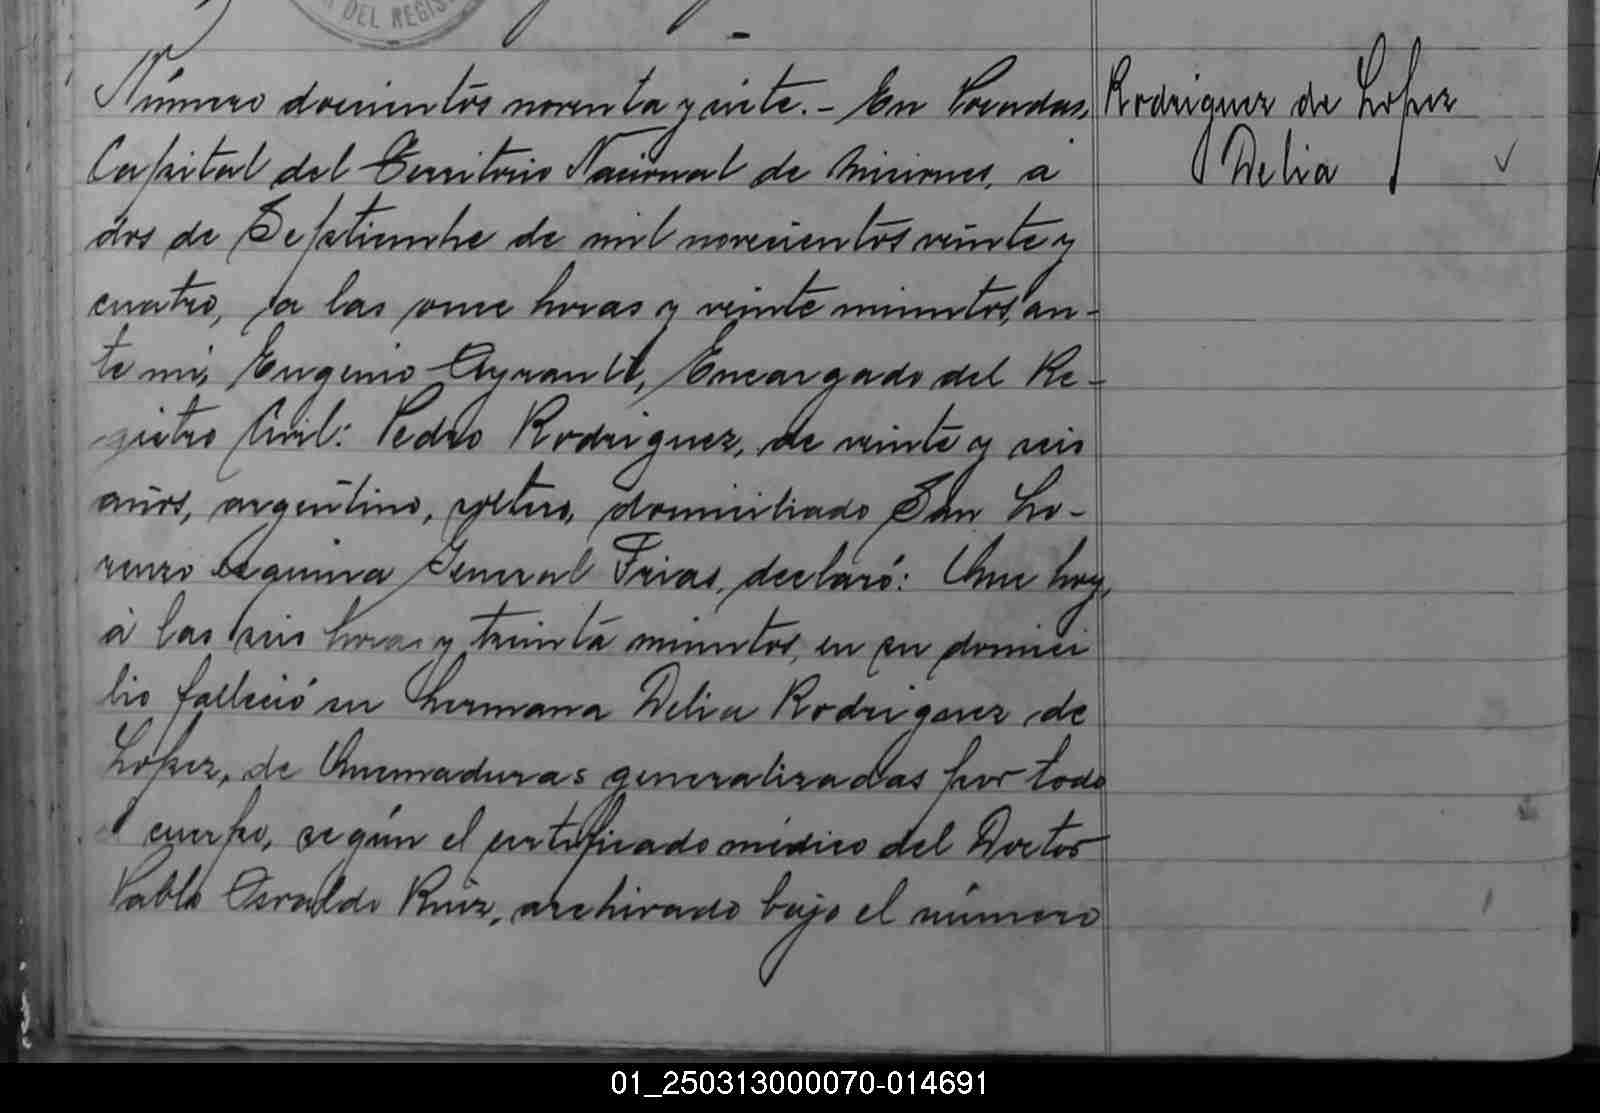 DEL REGIS
Número doscientos noventa y siete.- En Posadas,
Capital del Territorio Nacional de Misiones, á
dos de Septiembre de mil novecientos veinte y
cuatro, a las once horas y veinte minutos, an-
te mi, Eugenio Ayrault, Encargado del Re-
gistro Civil: Pedro Rodriguez, de veinte y seis
años, argentino, soltero, domiciliado San Lo-
renzo esquina General Frias, declaró: Que hoy,
á las seis horas y treinta minutos, en su domici
lio falleció su hermana Delia Rodriguez de
Lopez, de Quemaduras generalizadas por todo
el cuerpo, según el certificado médico del Doctor
Pablo Osvaldo Ruiz, archivado bajo el número
Rodriguez de Lopez
Delia
01_250313000070-014691